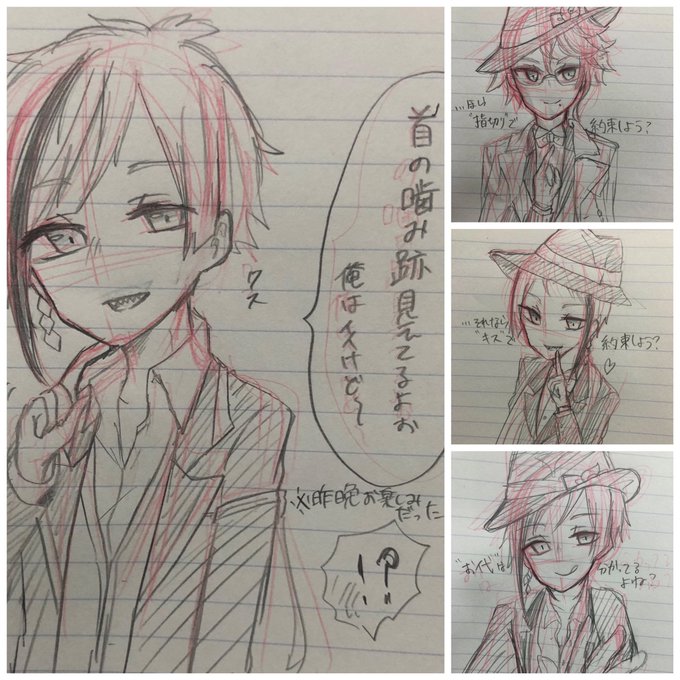 首の噛み跡見えてるよお
俺はイイけど〜
クス
※昨晩お楽しみ
だった
!?
…ほい
"指切り"で
約束しよう?
…それなら
"キス"で
約束しよう?♡
"お代"は
分かってる
よね?